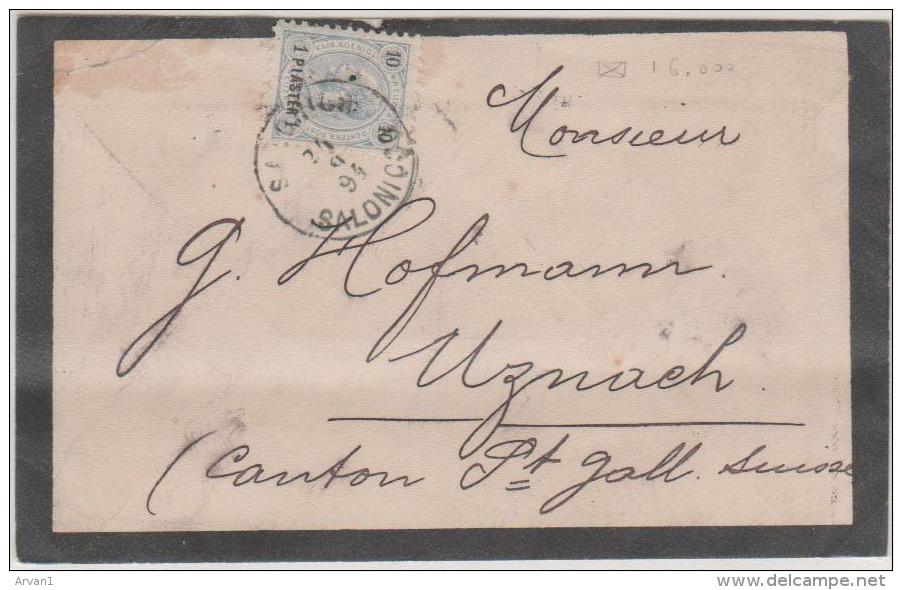 10
1 PIASTER 1
KAIS. KOENIGL.
10
16,000
Monsieur
94
SALONICCO
G. Hofmann.
Uznach.
(Canton St Gall. Suisse
Arvan1
delcampe.net